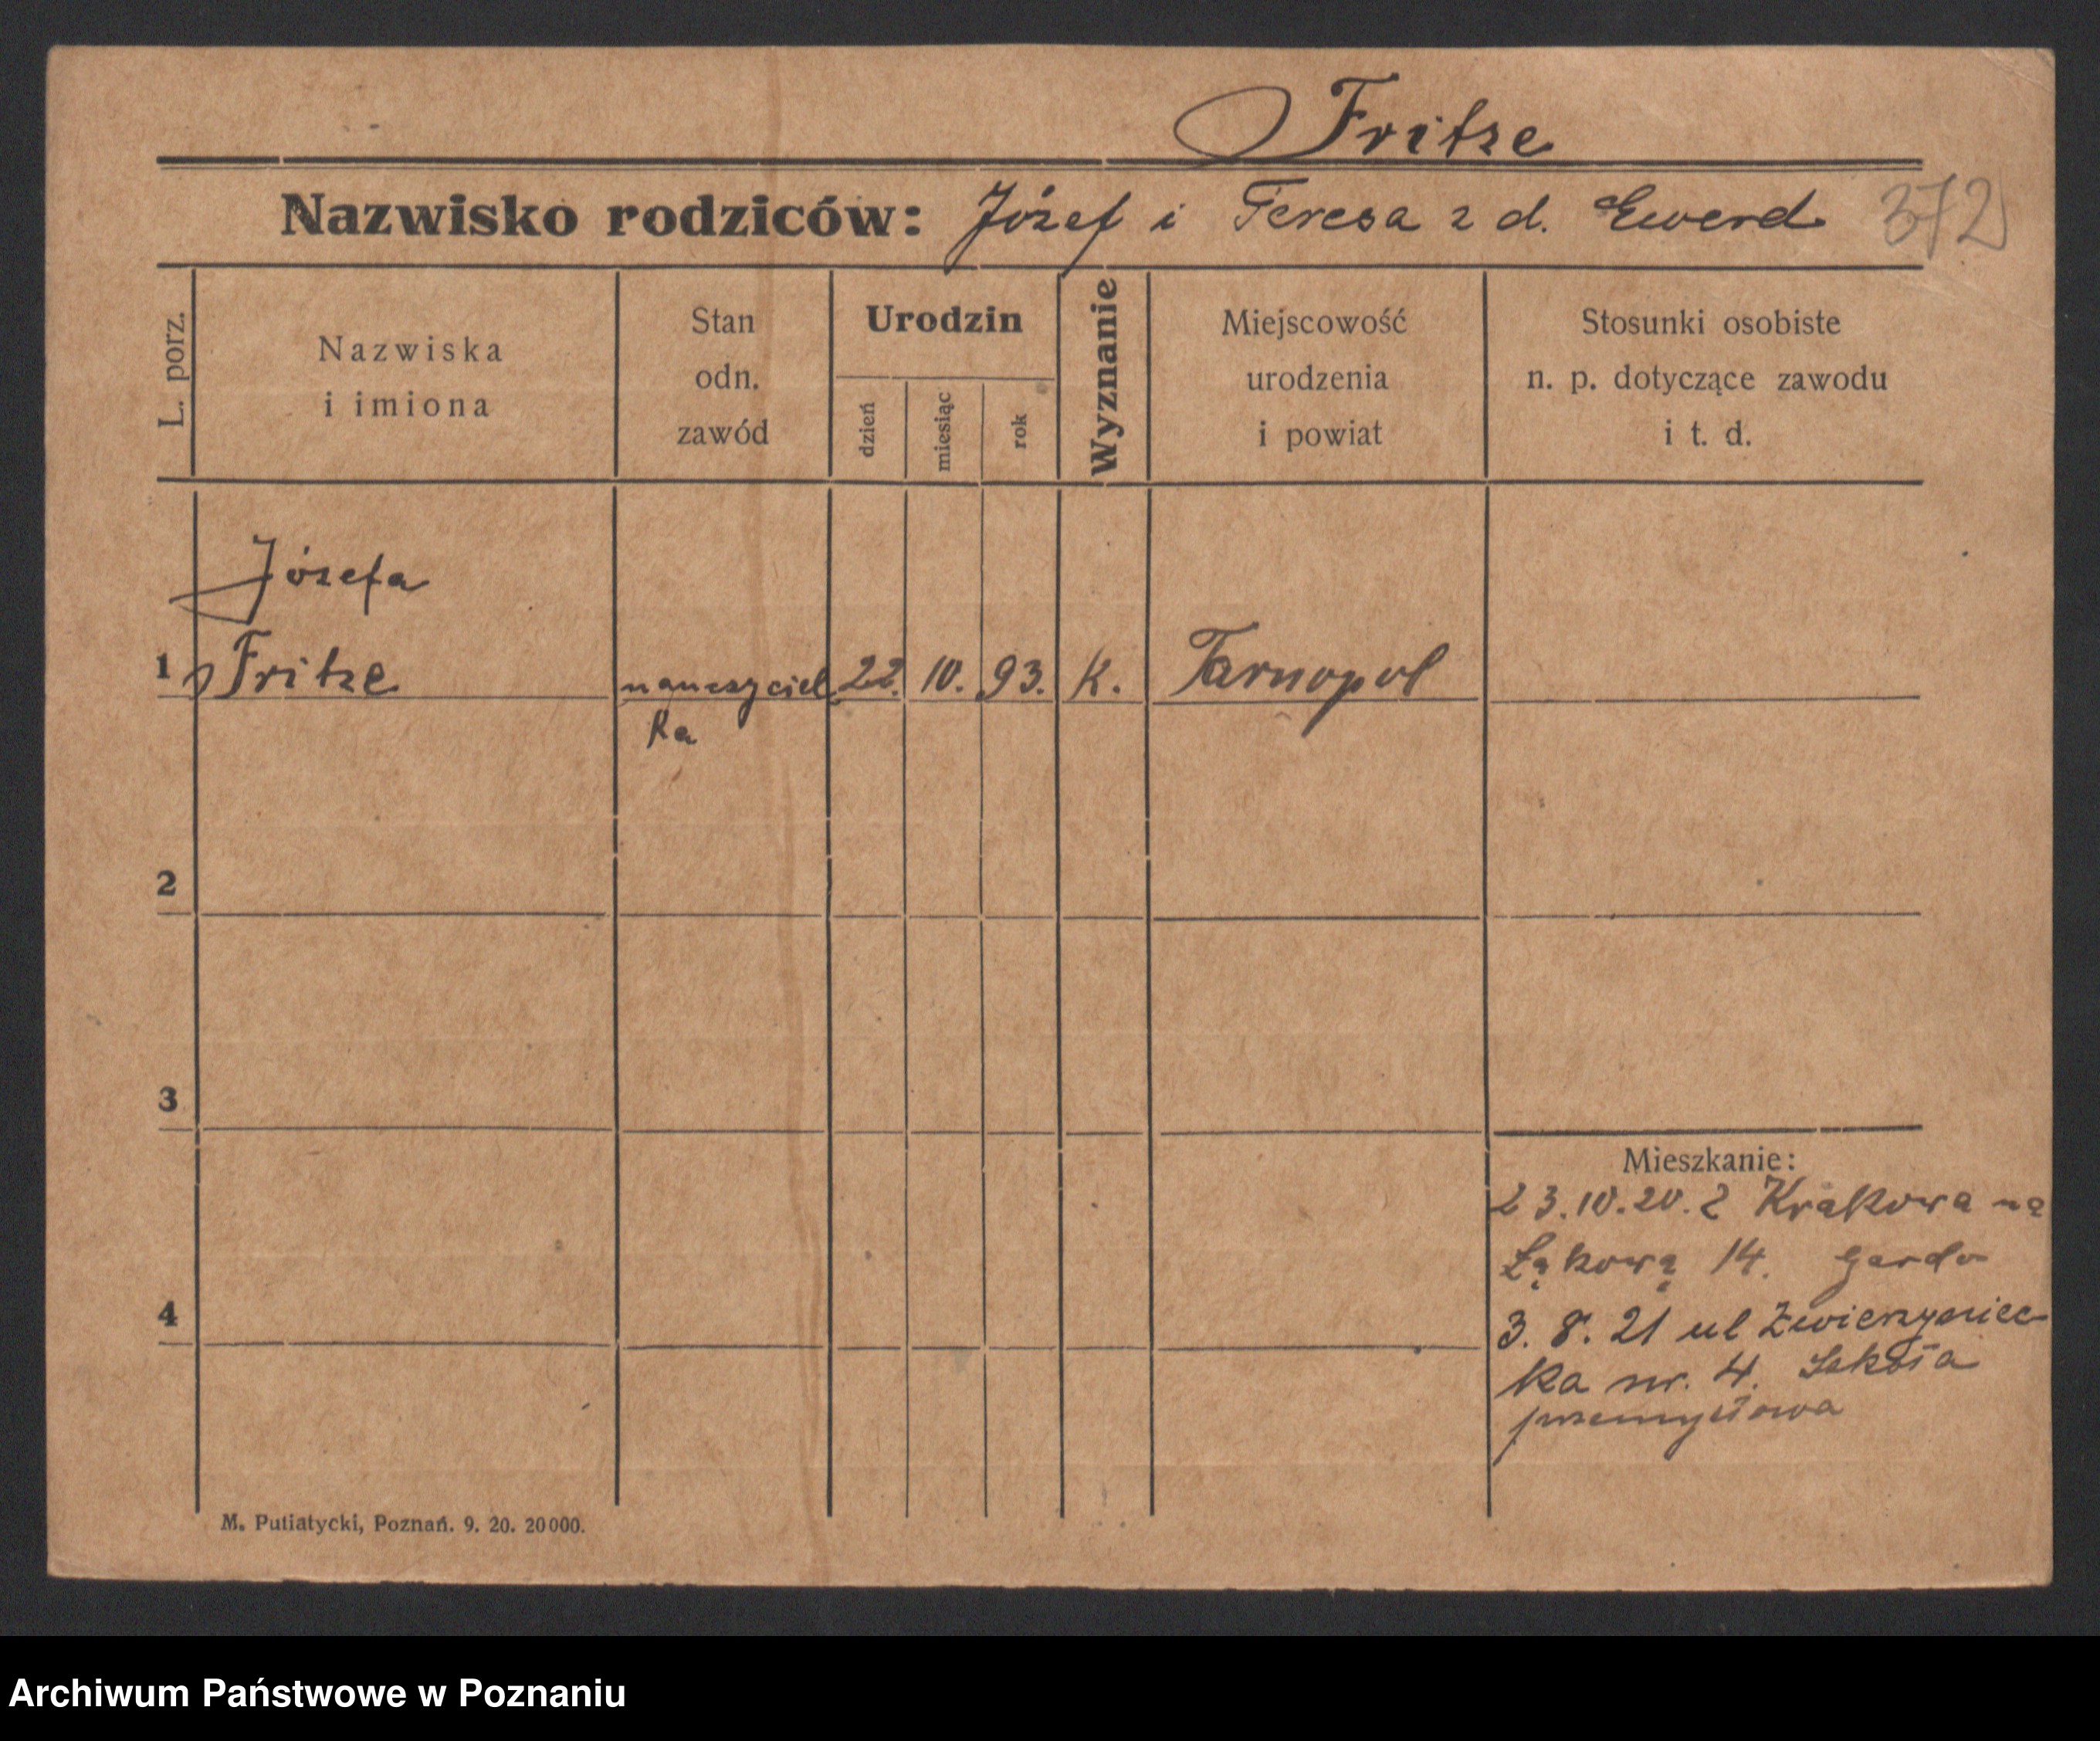 Fritze
Nazwisko rodziców: Józef i Teresa z d. Ewerd 372
L. porz.
Nazwiska
i imiona
Stan
odn.
zawód
Urodzin
dzień
miesiąc
rok
Wyznanie
Miejscowość
urodzenia
i powiat
Stosunki osobiste
n. p. dotyczące zawodu
i t. d.
Józefa
1 Fritze nauczyciel 22. 10. 93. K. Tarnopol
ka
2
3
4
Mieszkanie:
23.10.20. z Krakowa na
Łąkową 14.
3. 8. 21 ul Zwierzyniec
ka nr. 4. Szkoła
przemysłowa
M. Putiatycki, Poznań. 9. 20. 20000.
Archiwum Państwowe w Poznaniu